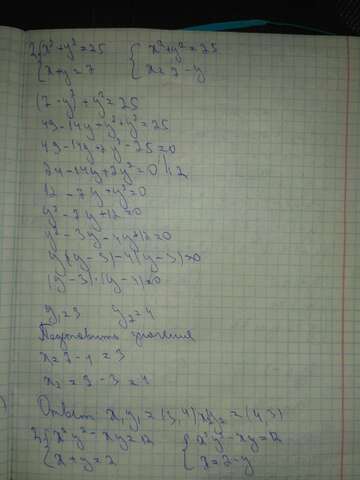 2. { x² + y² = 25 { x² + y² = 25
{ x + y = 7 { x = 7 - y
(7 - y)² + y² = 25
49 - 14y + y² + y² = 25
49 - 14y + 2y² - 25 = 0
24 - 14y + 2y² = 0 | :2
12 - 7y + y² = 0
y² - 7y + 12 = 0
y² - 3y - 4y + 12 = 0
y(y - 3) - 4(y - 3) = 0
(y - 3)·(y - 4) = 0
y₁ = 3 y₂ = 4
Подставить значения
Ответ x, y₁ = (3, 4) = (4, 3)
3. { x²y² - xy = 12 { x²y² - xy = 12
{ x + y = 2 { x = 2 - y